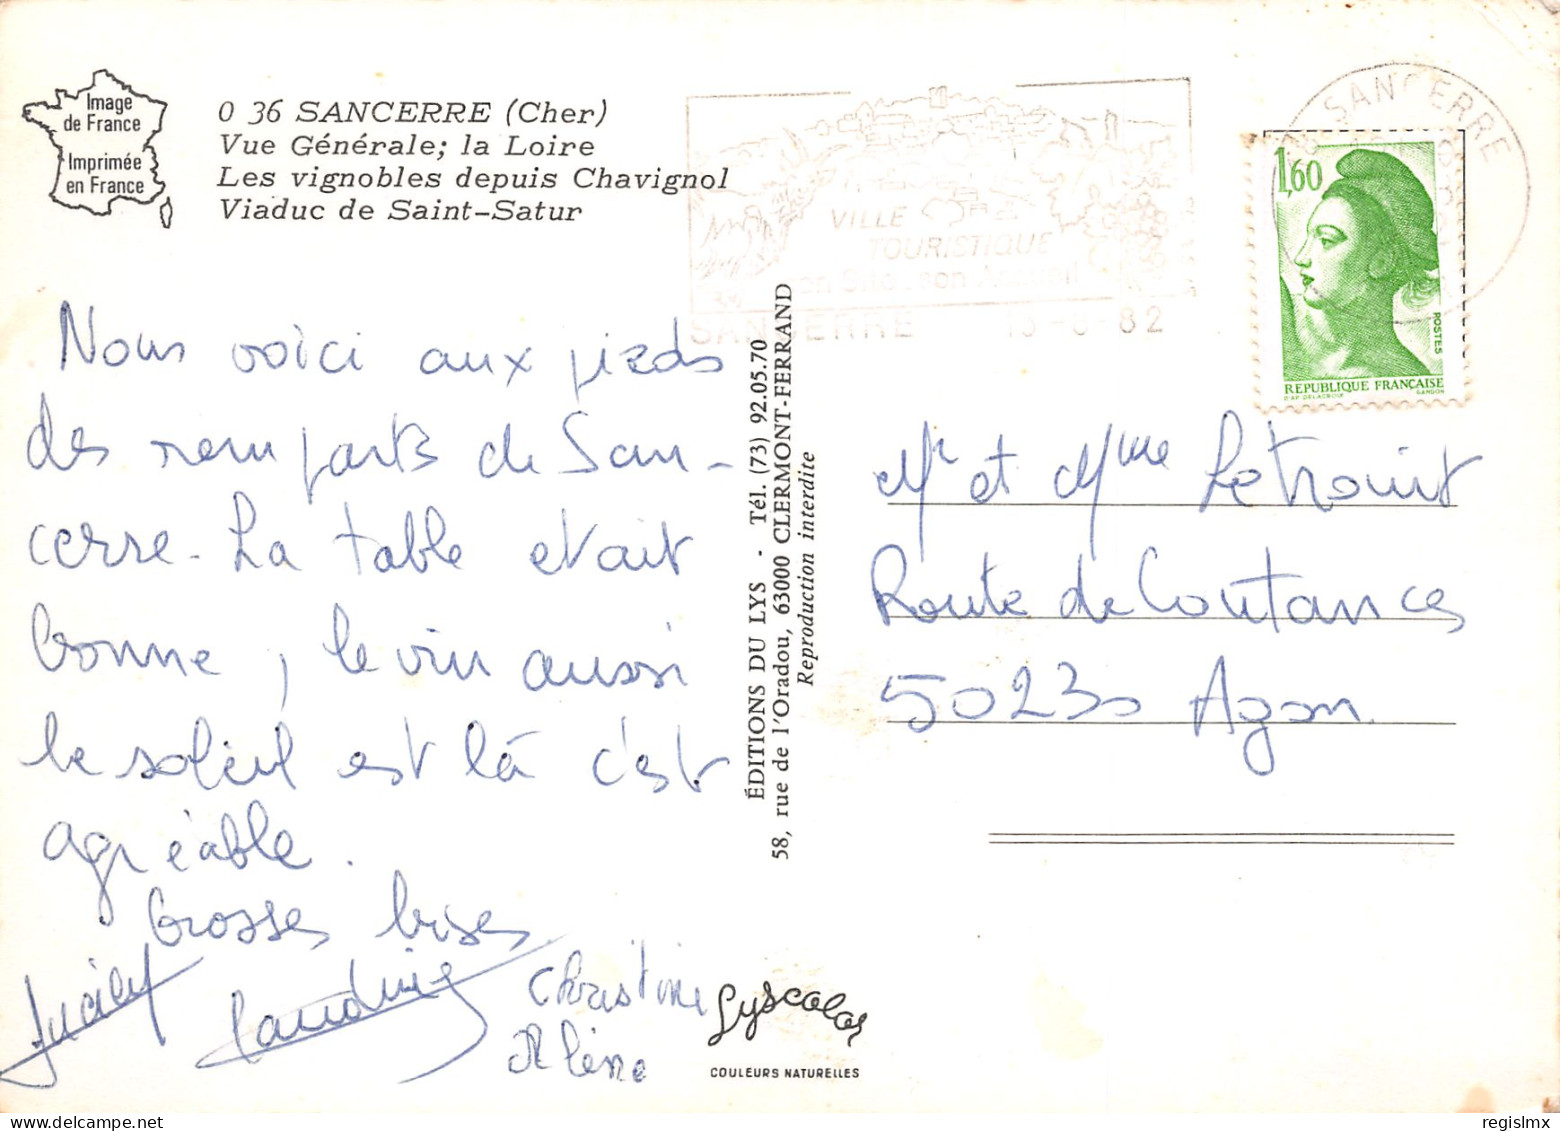 Image
de France
Imprimée
en France
0 36 SANCERRE (Cher)
Vue Générale; la Loire
Les vignobles depuis Chavignol
Viaduc de Saint-Satur
VILLE
TOURISTIQUE
son Site, son Accueil
SANCERRE 13-8-82
SANCERRE
1,60
POSTES
REPUBLIQUE FRANÇAISE
D'AP. DELACROIX GANDON
Nous voici aux pieds
des remparts de San-
cerre - La table etait
bonne, le vin aussi
le soleil est là c'est
agréable.
Grosses bises
Christine
Alène
ÉDITIONS DU LYS - Tél. (73) 92.05.70
58, rue de l'Oradou, 63000 CLERMONT-FERRAND
Reproduction interdite
Mr et Mme Letrouit
Route de Coutances
50230 Agon
Lyscolor
COULEURS NATURELLES
regislmx